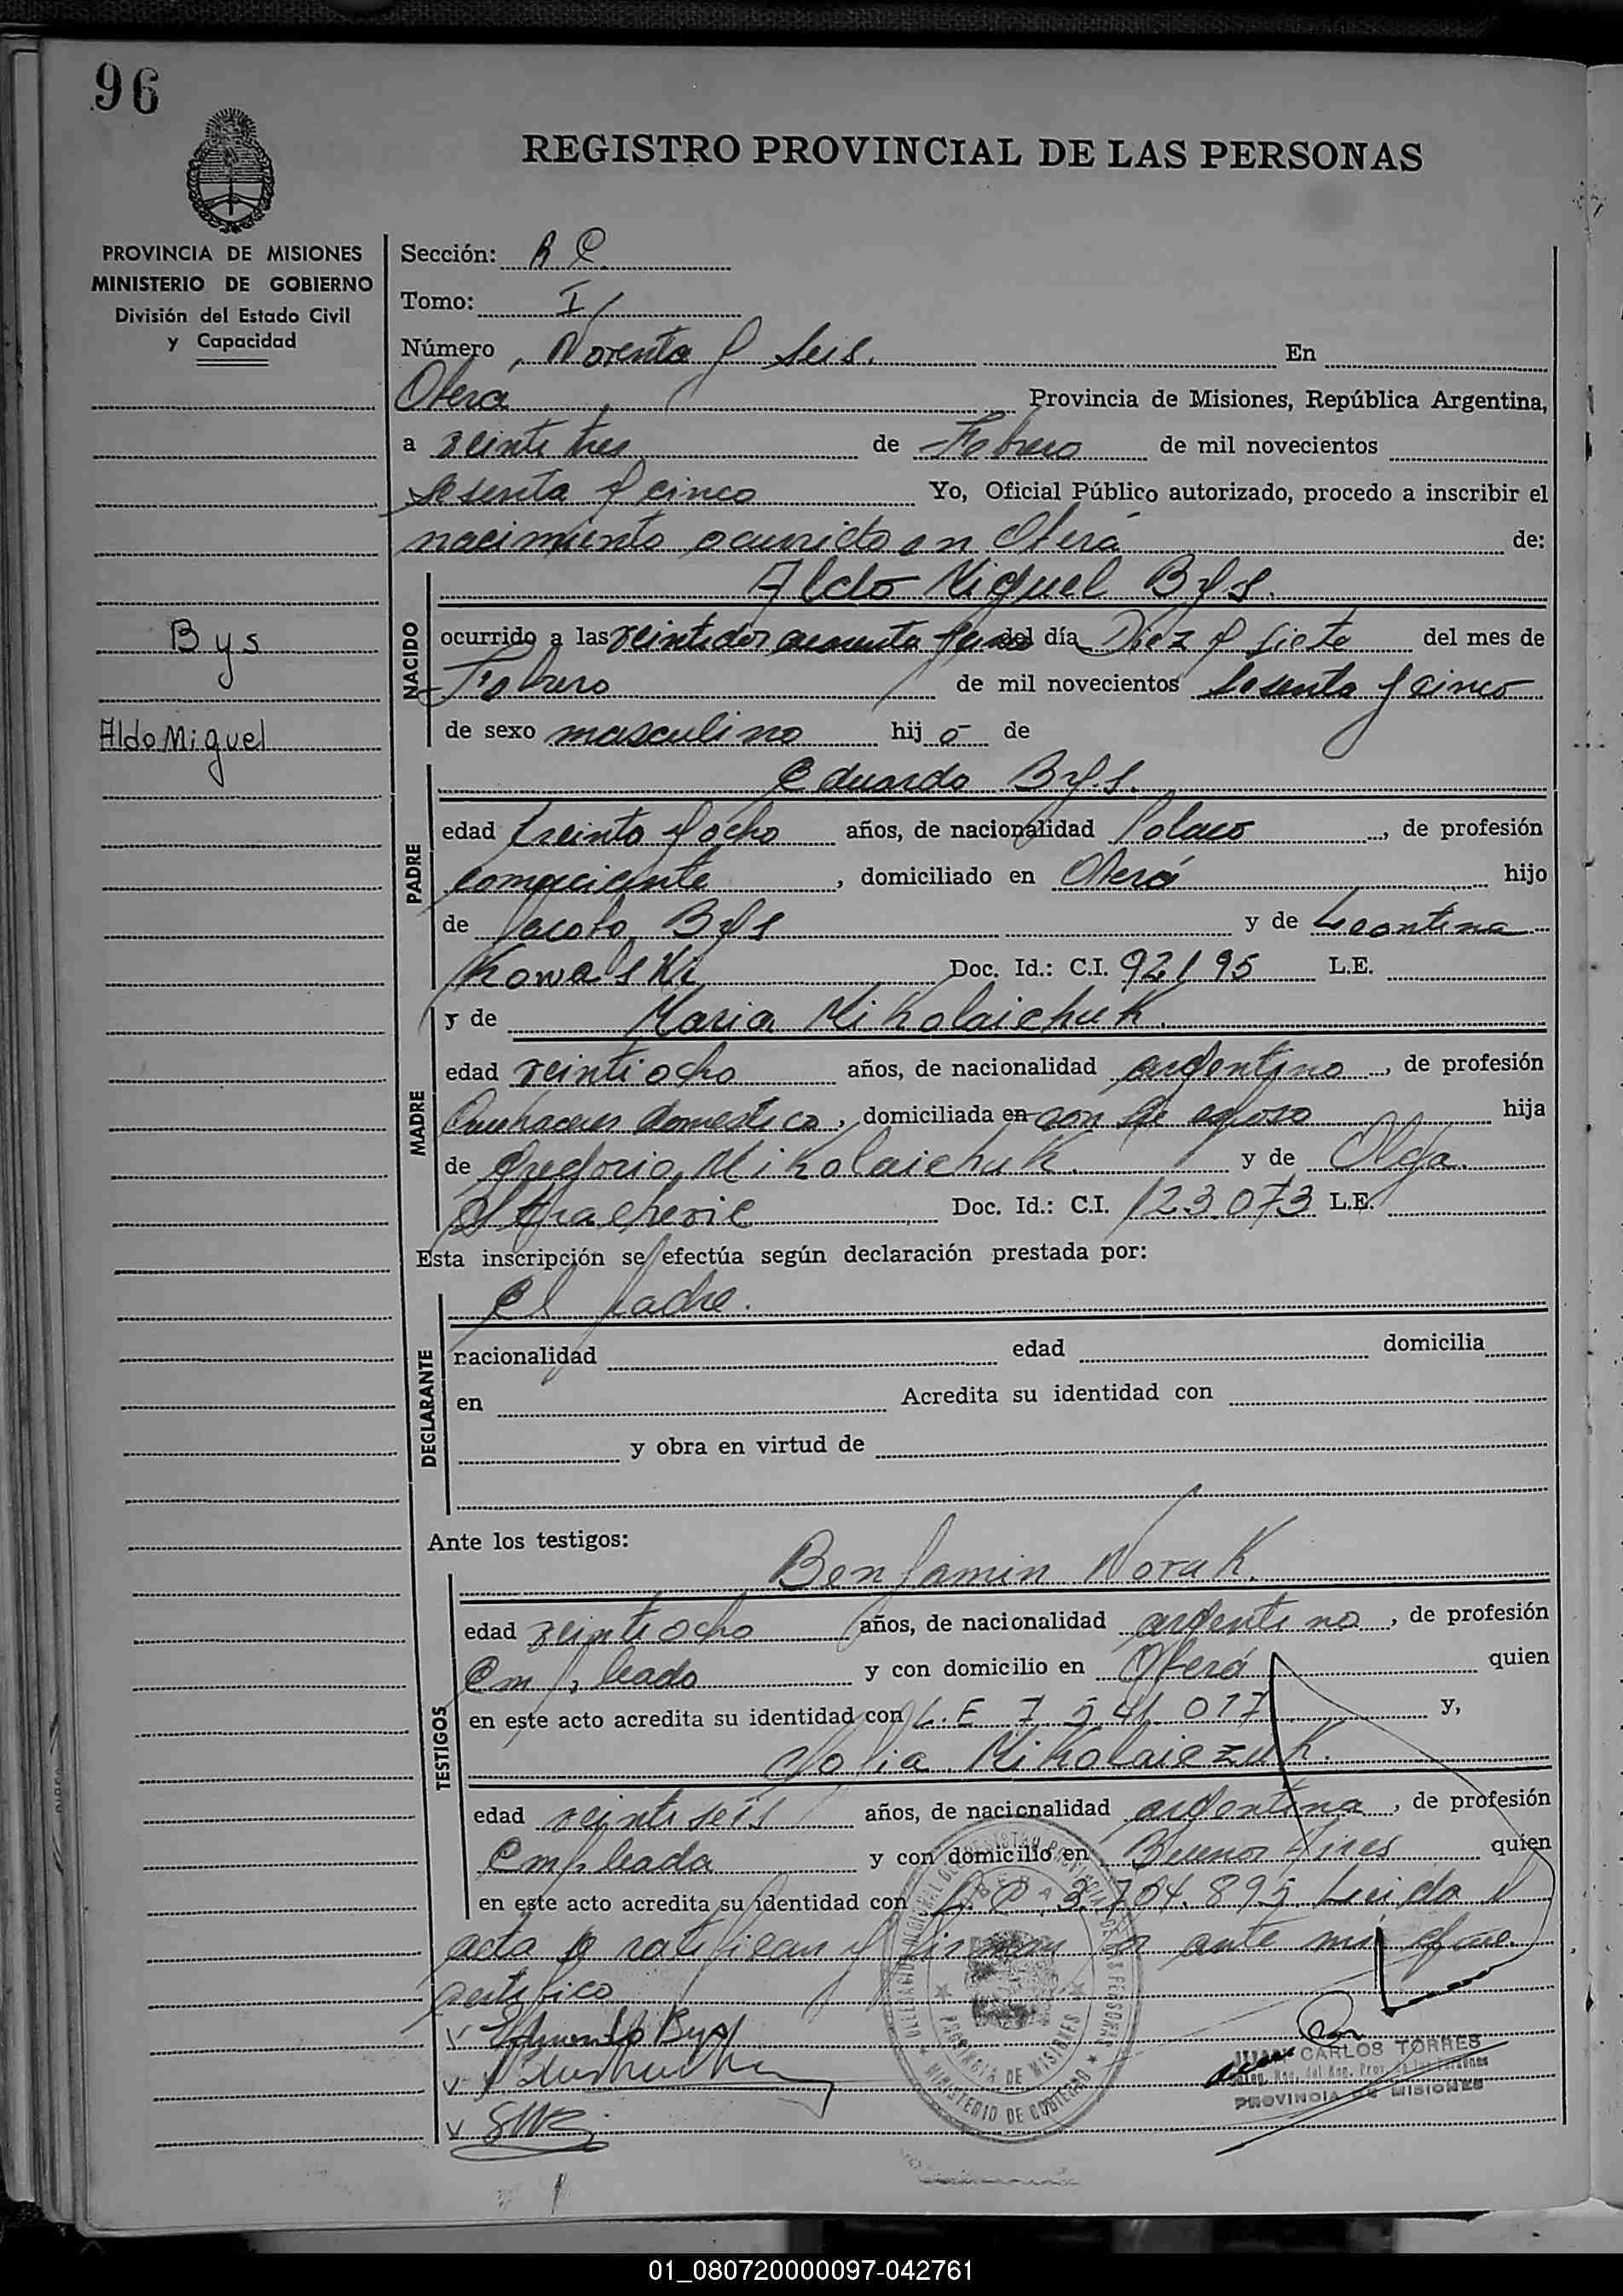 96
REGISTRO PROVINCIAL DE LAS PERSONAS
PROVINCIA DE MISIONES
MINISTERIO DE GOBIERNO
División del Estado Civil
y Capacidad
Bys
Aldo Miguel
Sección:
Tomo: I
Número Noventa y seis. En
Oberá Provincia de Misiones, República Argentina,
a veinte tres de Febrero de mil novecientos
sesenta y cinco Yo, Oficial Público autorizado, procedo a inscribir el
nacimiento ocurrido en Oberá de:
NACIDO
Aldo Miguel Bys.
ocurrido a las veintidos del día Diez y siete del mes de
Febrero de mil novecientos sesenta y cinco
de sexo masculino hij o de
PADRE
Eduardo Bys.
edad treinta y ocho años, de nacionalidad Polaco, de profesión
comerciante, domiciliado en Oberá hijo
de Jacobo Bys y de Leontina
Kowalski Doc. Id.: C.I. 92195 L.E.
MADRE
y de Maria Mikolaichuk.
edad veintiocho años, de nacionalidad argentina, de profesión
Quehaceres domestico, domiciliada en con su esposo hija
de Gregorio Mikolaichuk. y de Olga.
Doc. Id.: C.I. 123.073 L.E.
Esta inscripción se efectúa según declaración prestada por:
DECLARANTE
El padre.
nacionalidad edad domicilia
en Acredita su identidad con
y obra en virtud de
Ante los testigos:
TESTIGOS
Benjamin Novak.
edad veintiocho años, de nacionalidad argentino, de profesión
Empleado y con domicilio en Oberá quien
en este acto acredita su identidad con L.E 7.541.017 y,
Sofia Mikolaiczuk.
edad veinti seis años, de nacionalidad argentina, de profesión
Empleada y con domicilio en Buenos Aires quien
en este acto acredita su identidad con 3.704.895 Leida el
acta la ratifican y firman por ante mi que
certifico
Eduardo Bys
CARLOS TORRES
PROVINCIA DE MISIONES
PROVINCIA DE MISIONES
MINISTERIO DE GOBIERNO
01_080720000097-042761